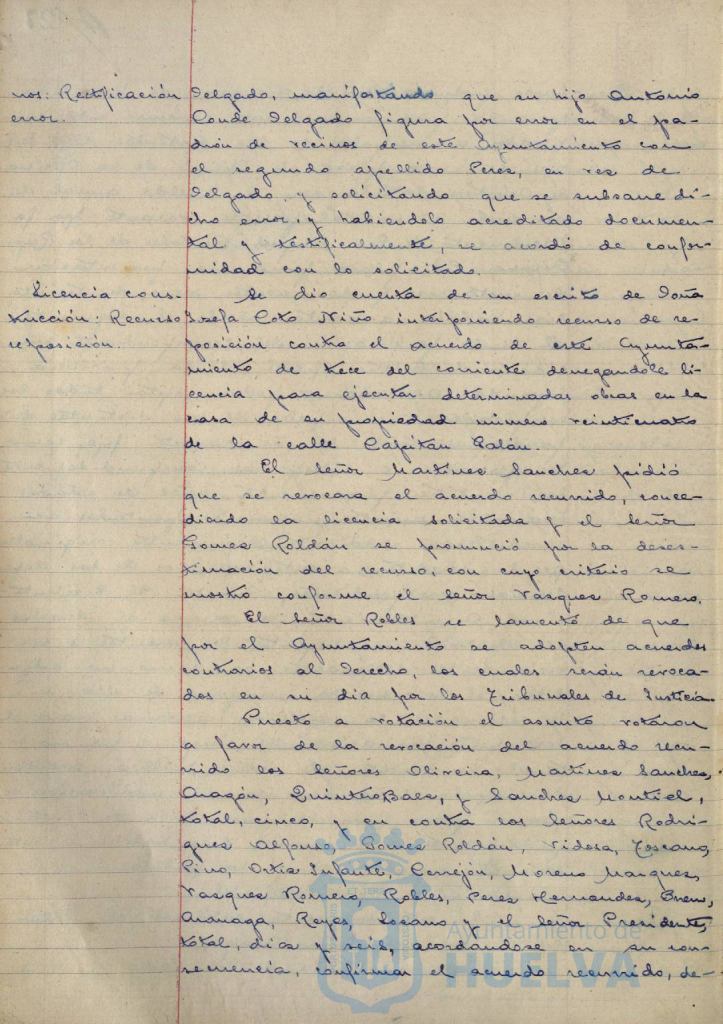 nos: Rectificación
error.
Delgado, manifestando que su hijo Antonio
Conde Delgado figura por error en el pa-
drón de vecinos de este Ayuntamiento con
el segundo apellido Perez, en vez de
Delgado, y solicitando que se subsane di-
cho error, y habiendolo acreditado documen-
tal y testificalmente, se acordó de confor-
midad con lo solicitado.
Licencia cons-
trucción: Recurso
reposición.
Se dio cuenta de un escrito de Doña
Josefa Coto Niño interponiendo recurso de re-
posición contra el acuerdo de este Ayunta-
miento de trece del corriente denegandole li-
cencia para ejecutar determinadas obras en la
casa de su propiedad número veinticuatro
de la calle Capitán Galán.
El Señor Martinez Sanchez pidió
que se revocara el acuerdo recurrido, conce-
diendo la licencia solicitada y el Señor
Gomez Roldán se pronunció por la deses-
timación del recurso, con cuyo criterio se
mostró conforme el Señor Vazquez Romero.
El Señor Robles se lamentó de que
por el Ayuntamiento se adopten acuerdos
contrarios al Derecho, los cuales serán revoca-
dos en su dia por los Tribunales de Justicia.
Puesto a votación el asunto votaron
a favor de la revocación del acuerdo recu-
rrido los Señores Oliveira, Martinez Sanchez,
Aragón, Quintero Baez, y Sanchez Montiel,
total, cinco, y en contra los Señores Rodri-
guez Alfonso, Gomez Roldán, Vidosa, Toscano,
Pino, Ortiz Infante, Cerrejón, Moreno Marquez,
Vazquez Romero, Robles, Perez Hernandez,
Reyes, Lozano y el Señor Presidente,
total, diez y seis, acordandose en su con-
secuencia, confirmar el acuerdo recurrido, de-
Ayuntamiento de
HUELVA